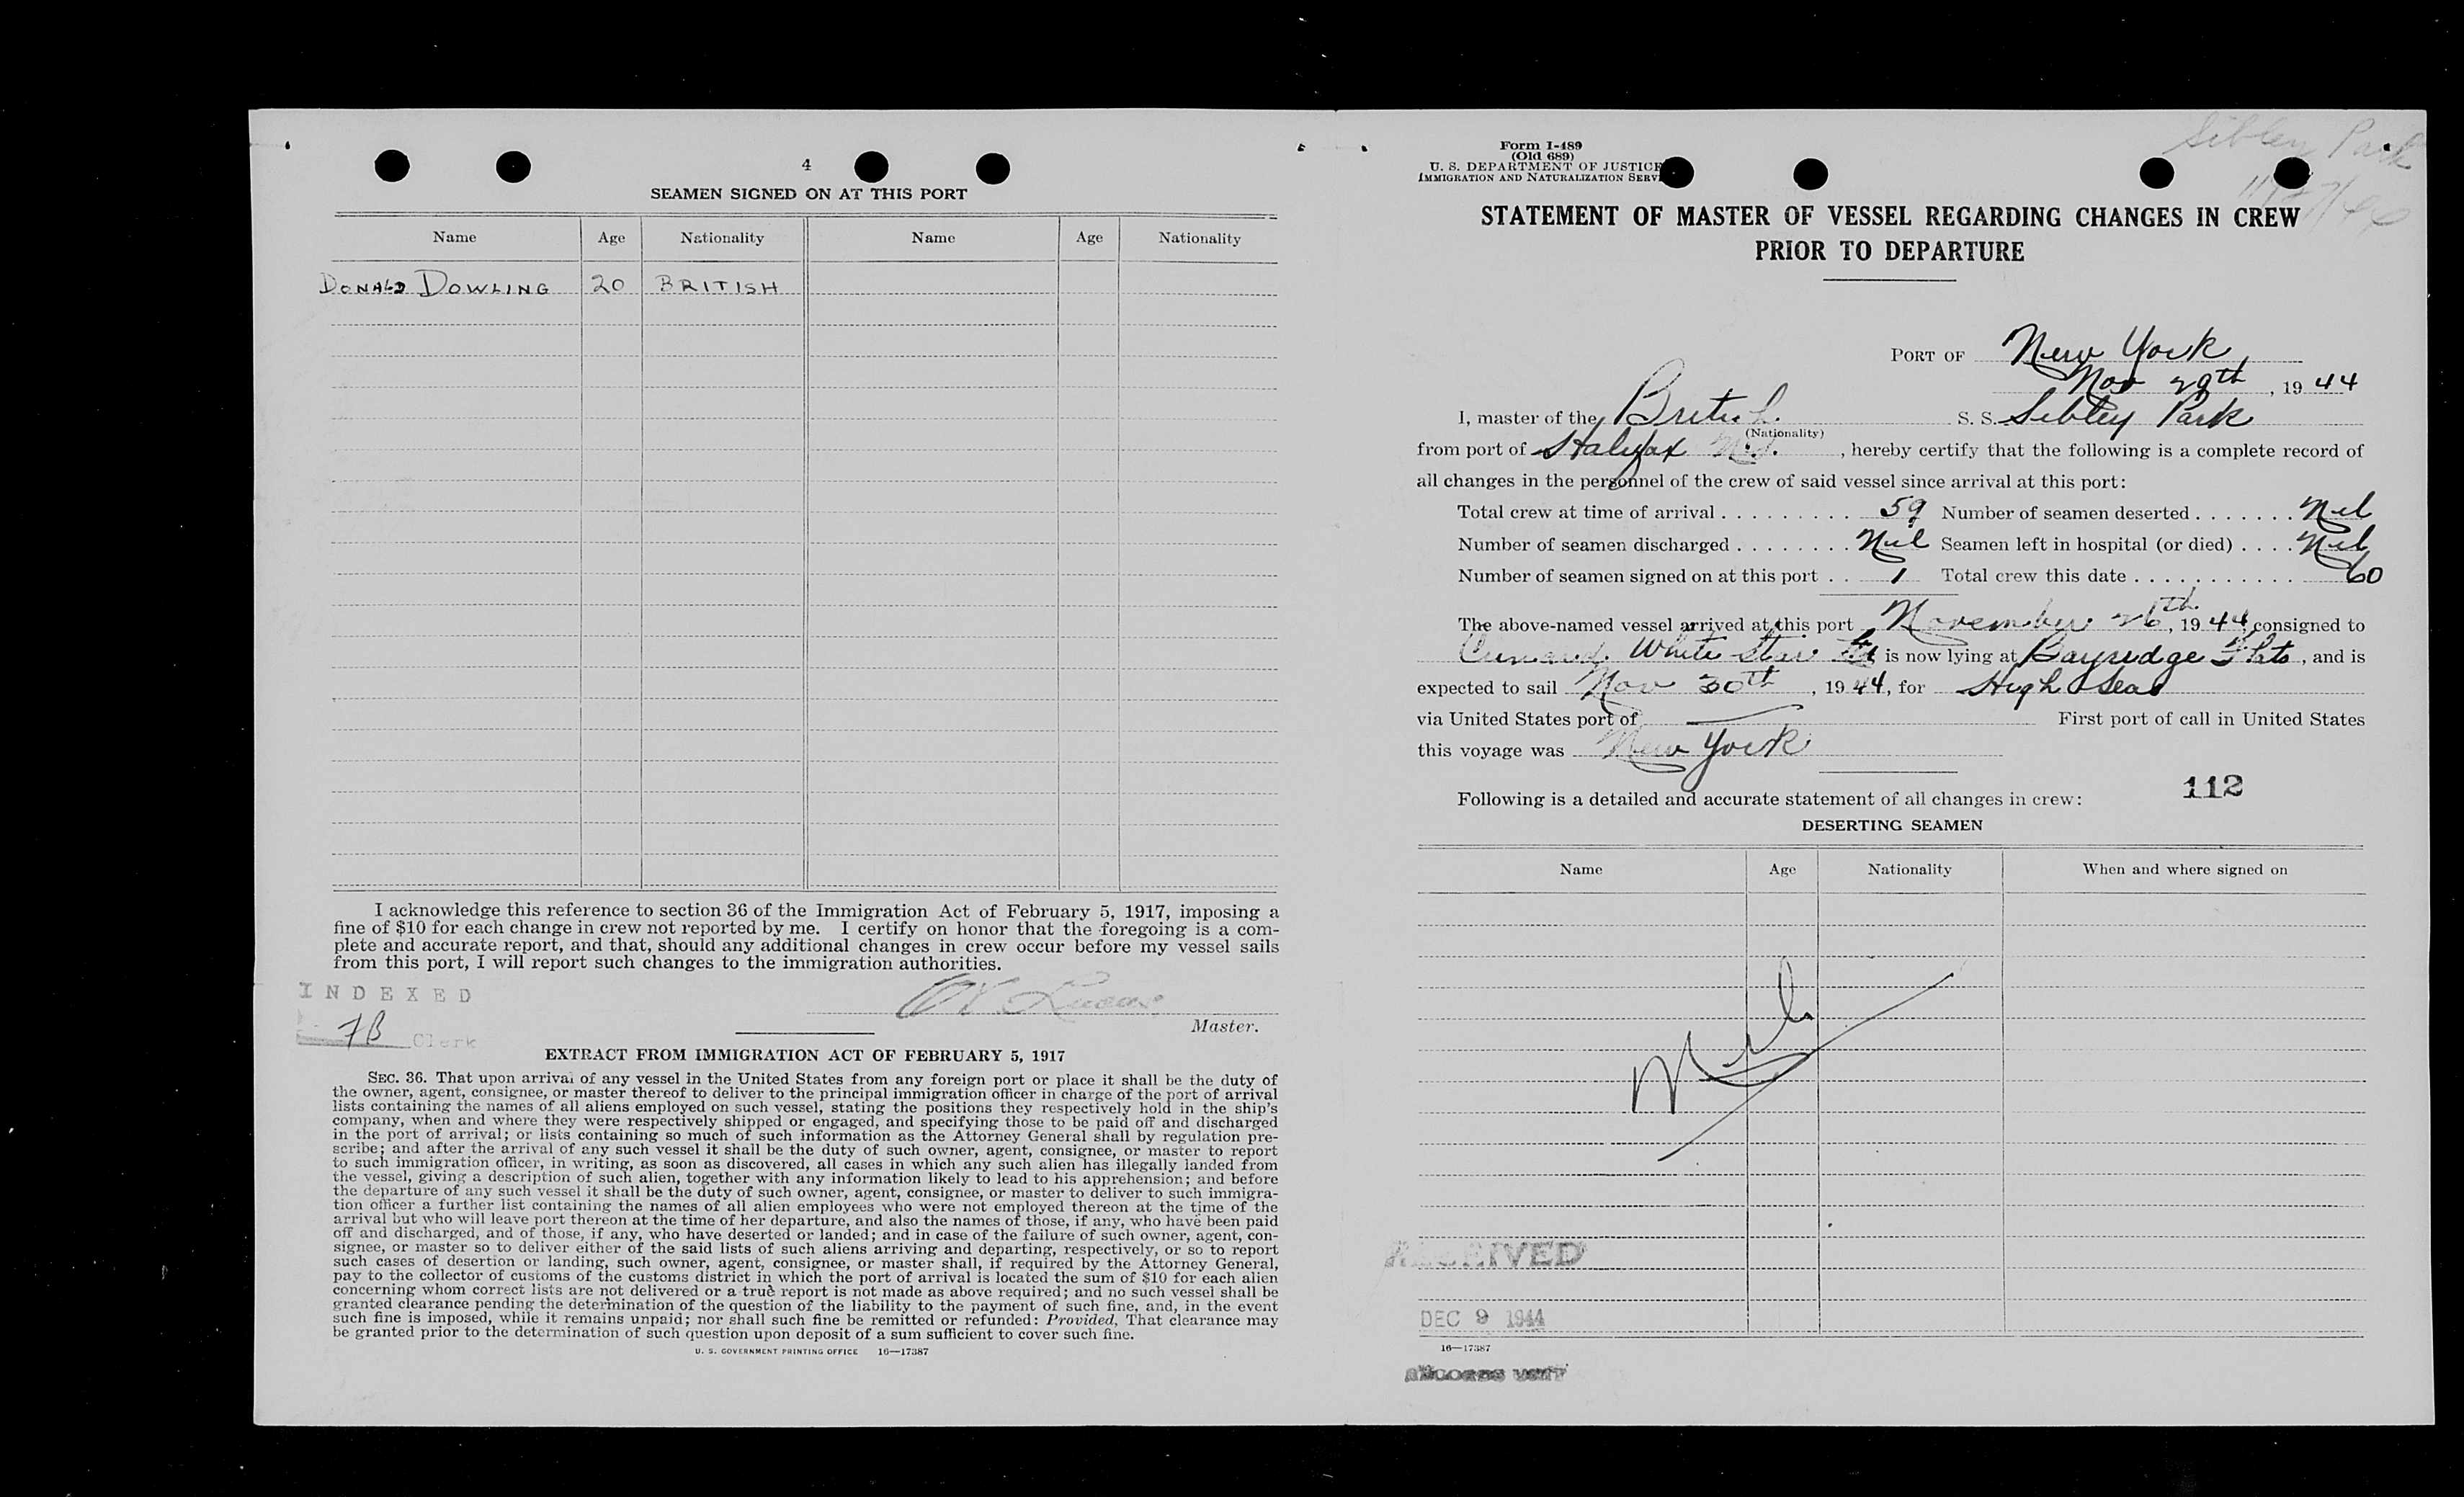 4
SEAMEN SIGNED ON AT THIS PORT
Name Age Nationality Name Age Nationality
DONALD DOWLING 20 BRITISH
I acknowledge this reference to section 36 of the Immigration Act of February 5, 1917, imposing a
fine of $10 for each change in crew not reported by me. I certify on honor that the foregoing is a com-
plete and accurate report, and that, should any additional changes in crew occur before my vessel sails
from this port, I will report such changes to the immigration authorities.
INDEXED
Lucas
Master.
7B Clerk
EXTRACT FROM IMMIGRATION ACT OF FEBRUARY 5, 1917
SEC. 36. That upon arrival of any vessel in the United States from any foreign port or place it shall be the duty of
the owner, agent, consignee, or master thereof to deliver to the principal immigration officer in charge of the port of arrival
lists containing the names of all aliens employed on such vessel, stating the positions they respectively hold in the ship's
company, when and where they were respectively shipped or engaged, and specifying those to be paid off and discharged
in the port of arrival; or lists containing so much of such information as the Attorney General shall by regulation pre-
scribe; and after the arrival of any such vessel it shall be the duty of such owner, agent, consignee, or master to report
to such immigration officer, in writing, as soon as discovered, all cases in which any such alien has illegally landed from
the vessel, giving a description of such alien, together with any information likely to lead to his apprehension; and before
the departure of any such vessel it shall be the duty of such owner, agent, consignee, or master to deliver to such immigra-
tion officer a further list containing the names of all alien employees who were not employed thereon at the time of the
arrival but who will leave port thereon at the time of her departure, and also the names of those, if any, who have been paid
off and discharged, and of those, if any, who have deserted or landed; and in case of the failure of such owner, agent, con-
signee, or master so to deliver either of the said lists of such aliens arriving and departing, respectively, or so to report
such cases of desertion or landing, such owner, agent, consignee, or master shall, if required by the Attorney General,
pay to the collector of customs of the customs district in which the port of arrival is located the sum of $10 for each alien
concerning whom correct lists are not delivered or a true report is not made as above required; and no such vessel shall be
granted clearance pending the determination of the question of the liability to the payment of such fine, and, in the event
such fine is imposed, while it remains unpaid; nor shall such fine be remitted or refunded: Provided, That clearance may
be granted prior to the determination of such question upon deposit of a sum sufficient to cover such fine.
U. S. GOVERNMENT PRINTING OFFICE 16—17387
Sibley Park
Form I-489
(Old 689)
U. S. DEPARTMENT OF JUSTICE
IMMIGRATION AND NATURALIZATION SERV
STATEMENT OF MASTER OF VESSEL REGARDING CHANGES IN CREW
PRIOR TO DEPARTURE
PORT OF New York
Nov 29th, 19 44
I, master of the British S. S. Sibley Park
(Nationality)
from port of Halifax N.S. , hereby certify that the following is a complete record of
all changes in the personnel of the crew of said vessel since arrival at this port:
Total crew at time of arrival . . . . . . . . . . 59 Number of seamen deserted . . . . . . . Nil
Number of seamen discharged . . . . . . . . Nil Seamen left in hospital (or died) . . . . Nil
Number of seamen signed on at this port . . 1 Total crew this date . . . . . . . . . . . . 60
The above-named vessel arrived at this port November 26th, 19 44, consigned to
Cunard White Star Ltd is now lying at Bayridge Flats, and is
expected to sail Nov 30th, 19 44, for High Seas
via United States port of — First port of call in United States
this voyage was New York
112
Following is a detailed and accurate statement of all changes in crew:
DESERTING SEAMEN
Name Age Nationality When and where signed on
Nil
RECEIVED
DEC 9 1944
16—17387
RECORDS UNIT